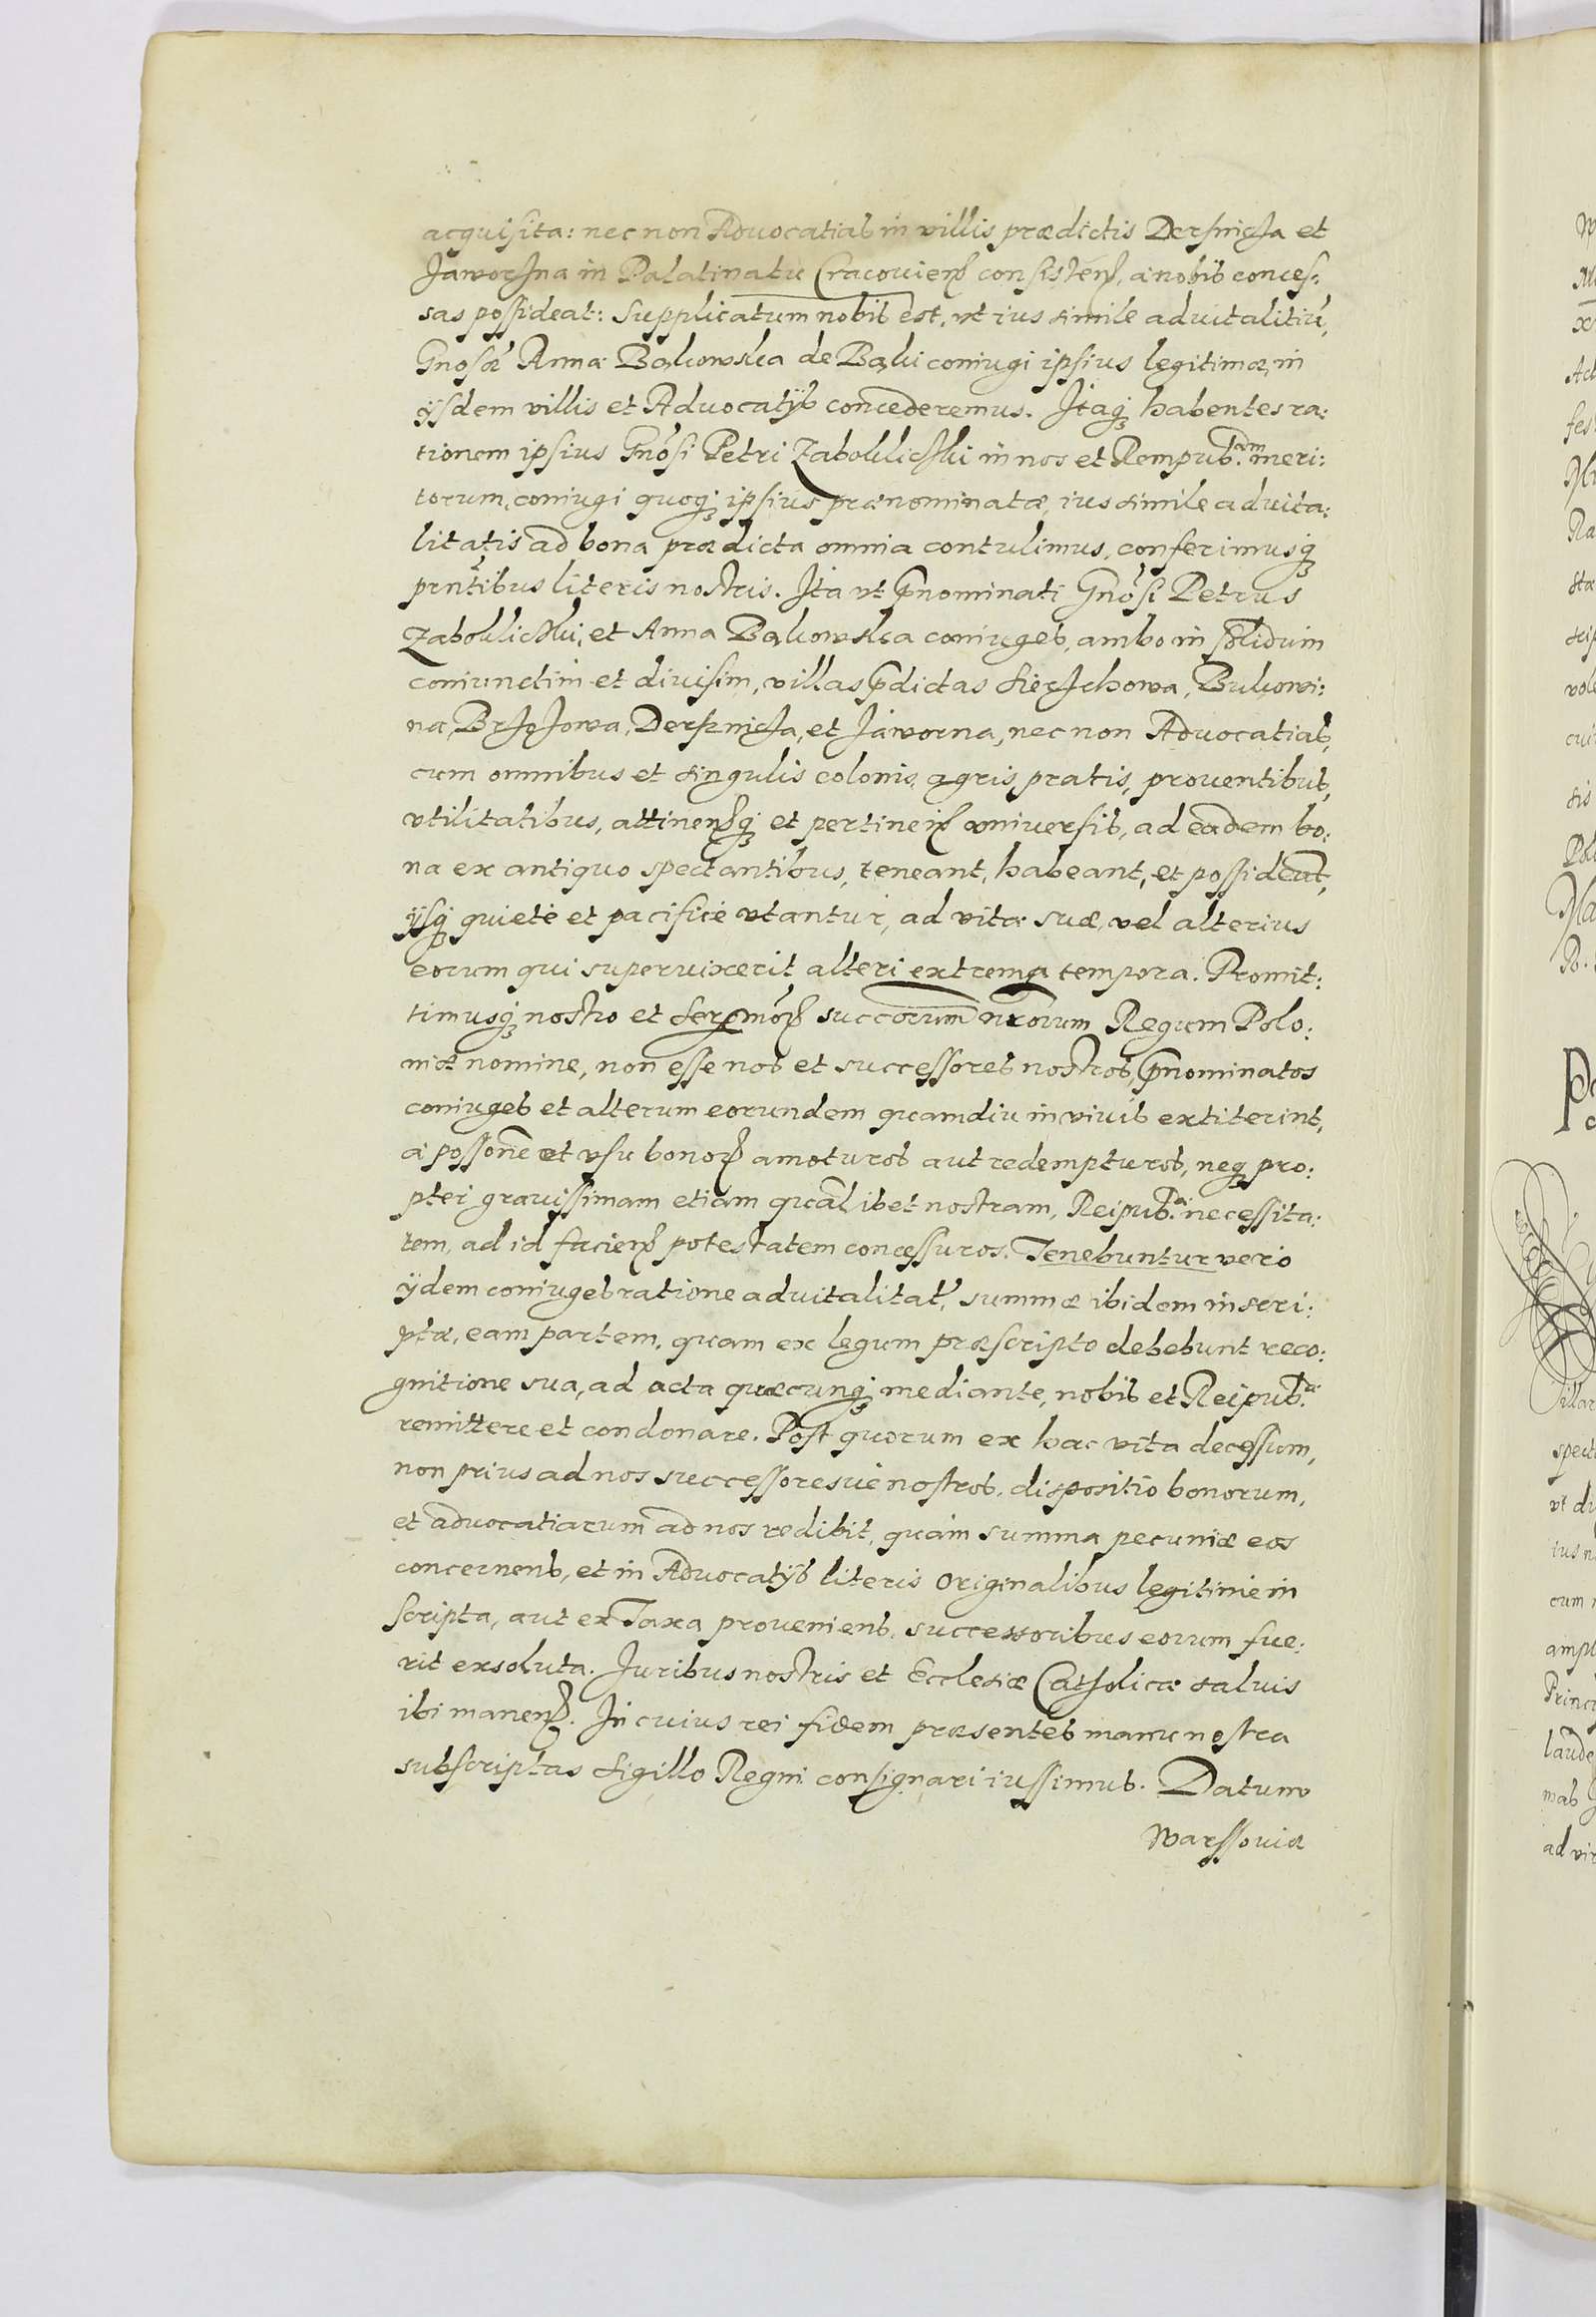 acquisita: nec non Advocatias in villis prædictis Dersnicza et
Jaworzna in Palatinatu Cracovien͂ consisten͂, à nobis conces:
sas possideat: Supplicatum nobis est, vt ius simile advitalitiu͂,
Gnosæ Annæ Bąkowska de Bąki coniugi ipsius legitimæ, in
ijsdem villis et Advocatijs concederemus. Itaq; habentes ra:
tionem ipsius Gnosi Petri Zabokliczki in nos et Rempub.cam meri:
torum, coniugi quoq; ipsius prænominatæ, ius simile advita:
litatis ad bona prædicta omnia contulimus, conferimusq;
prntibus literis nostris. Ita vt p͂nominati Gnosi Petrus
Zabokliczki, et Anna Bąkowska coniuges, ambo in solidum
coniunctim et divisim, villas p͂dictas Sierzchowa, Bukowi:
na, Brzozowa, Dersznicza, et Jaworna, nec non Advocatias,
cum omnibus et singulis colonis, agris, pratis, proventibus,
vtilitatibus, attinen͂q; et pertinen͂ vniversis, ad eadem bo:
na ex antiquo spectantibus, teneant, habeant, et possideant,
ijsq; quietè et pacificè vtantur, ad vitæ suæ, vel alterius
eorum qui supervixerit alteri extrema tempora. Promit:
timusq; nostro et Sermor͂ succorum nrorum Regum Polo:
niæ nomine, non esse nos et successores nostros, p͂nominatos
coniuges et alterum eorundem quamdiu in vivis extiterint,
à possone et vsu bonor͂ amoturos aut redempturos, neq; pro:
pter gravissimam etiam qualibet nostram, Reipub.cæ necessita:
tem, ad id facien͂ potestatem concessuros. Tenebuntur vero
ijdem coniuges ratione advitalitat͂, summæ ibidem inscri:
ptæ, eam partem, quam ex legum præscripto debebunt reco:
gnitione sua, ad acta quæcunq; mediante, nobis et Reipub.cæ
remittere et condonare. Post quorum ex hac vita decessum,
non prius ad nos successoresvè nostros, dispositio bonorum,
et advocatiarum ad nos redibit, quàm summa pecuniæ eos
concernens, et in Advocatijs literis originalibus legitimè in
scripta, aut ex Taxa proveniens, successoribus eorum fue:
rit exsoluta. Juribus nostris et Ecclesiæ Catholicæ salvis
ibi manen͂. In cuius rei fidem præsentes manu nostra
subscriptas Sigillo Regni consignari iussimus. Datum
Warssoviæ